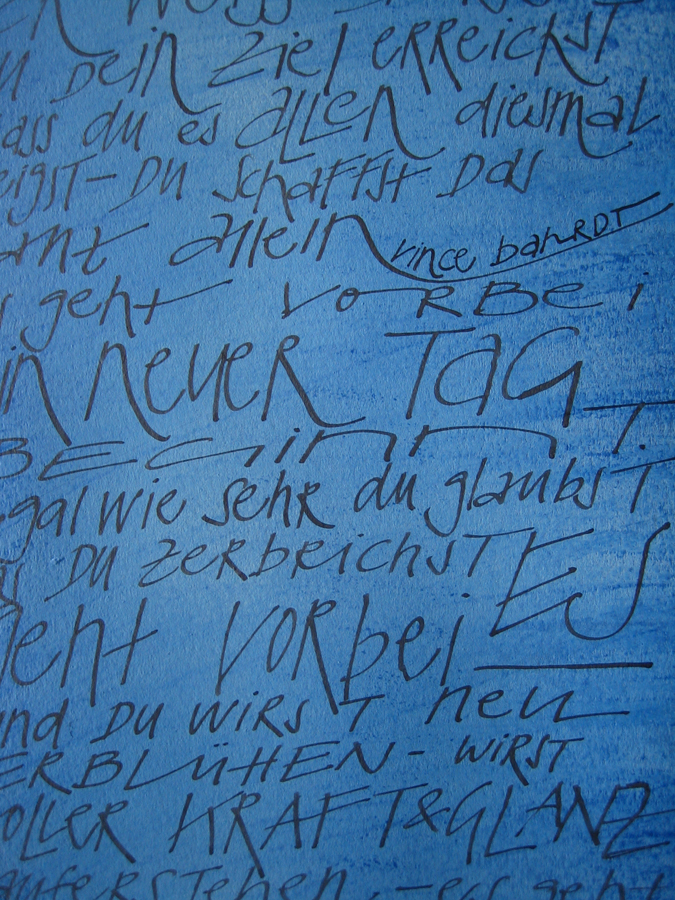 du Dein Ziel erreichst
dass du es allen diesmal
zeigst – Du schaffst das
ganz allein
vince bahrdt
es geht vorbei
ein neuer Tag
BEGINNT.
egal wie sehr du glaubst
Du zerbrichst
ES
geht vorbei
und Du wirst neu
ERBLÜHEN – wirst
voller KRAFT & GLANZ
auferstehen, – es geht